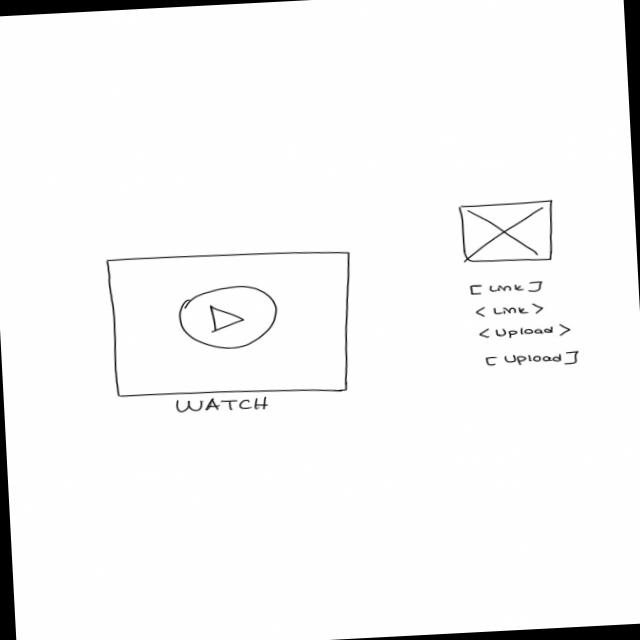 WATCH
[Link]
<Link>
<Upload>
[Upload]